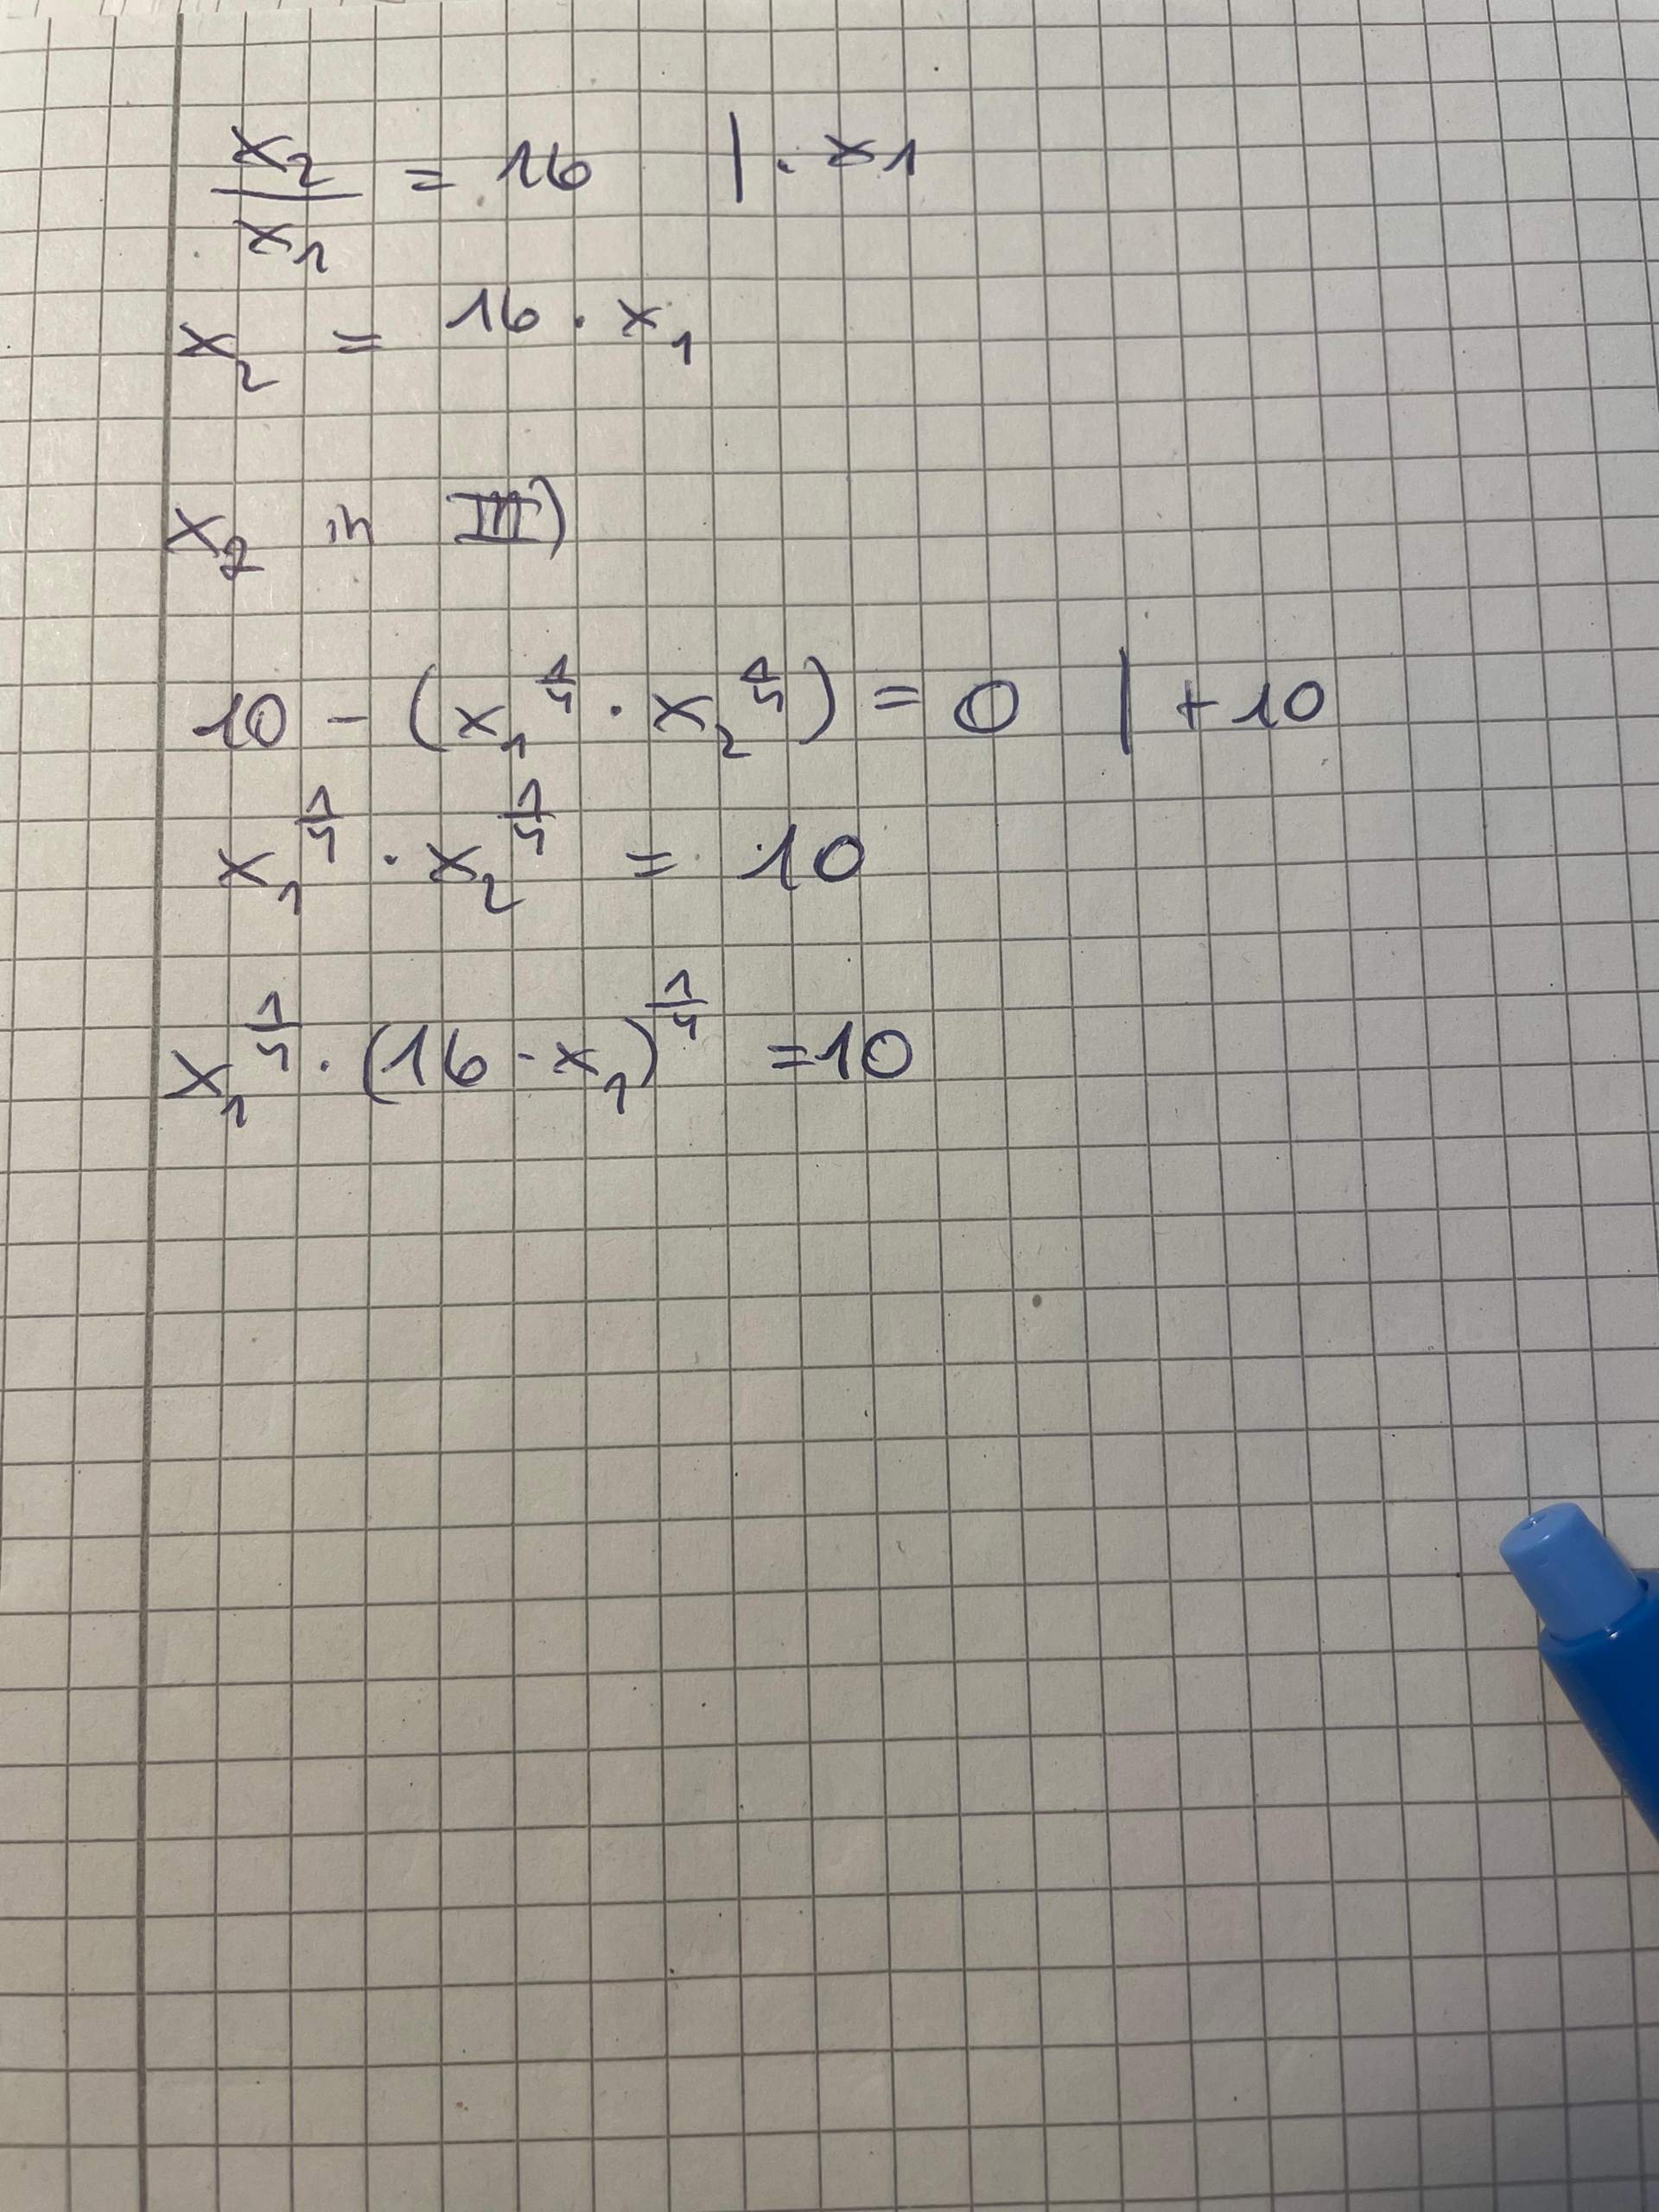 x₂/x₁ = 16 | · x1
x₂ = 16 · x₁
x₂ in III)
10 - (x₁^(1/4) · x₂^(1/4)) = 0 | +10
x₁^(1/4) · x₂^(1/4) = 10
x₁^(1/4) · (16 · x₁)^(1/4) = 10